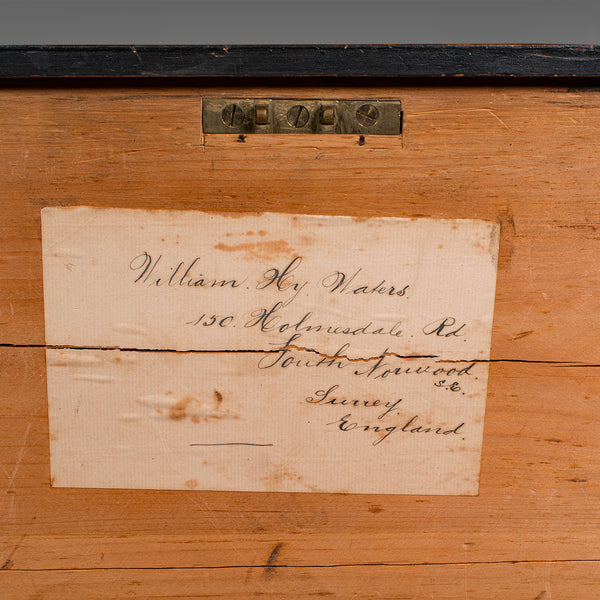 William. Hy Waters.
150. Holmesdale. Rd.
South Norwood.
S.E.
Surrey.
England.